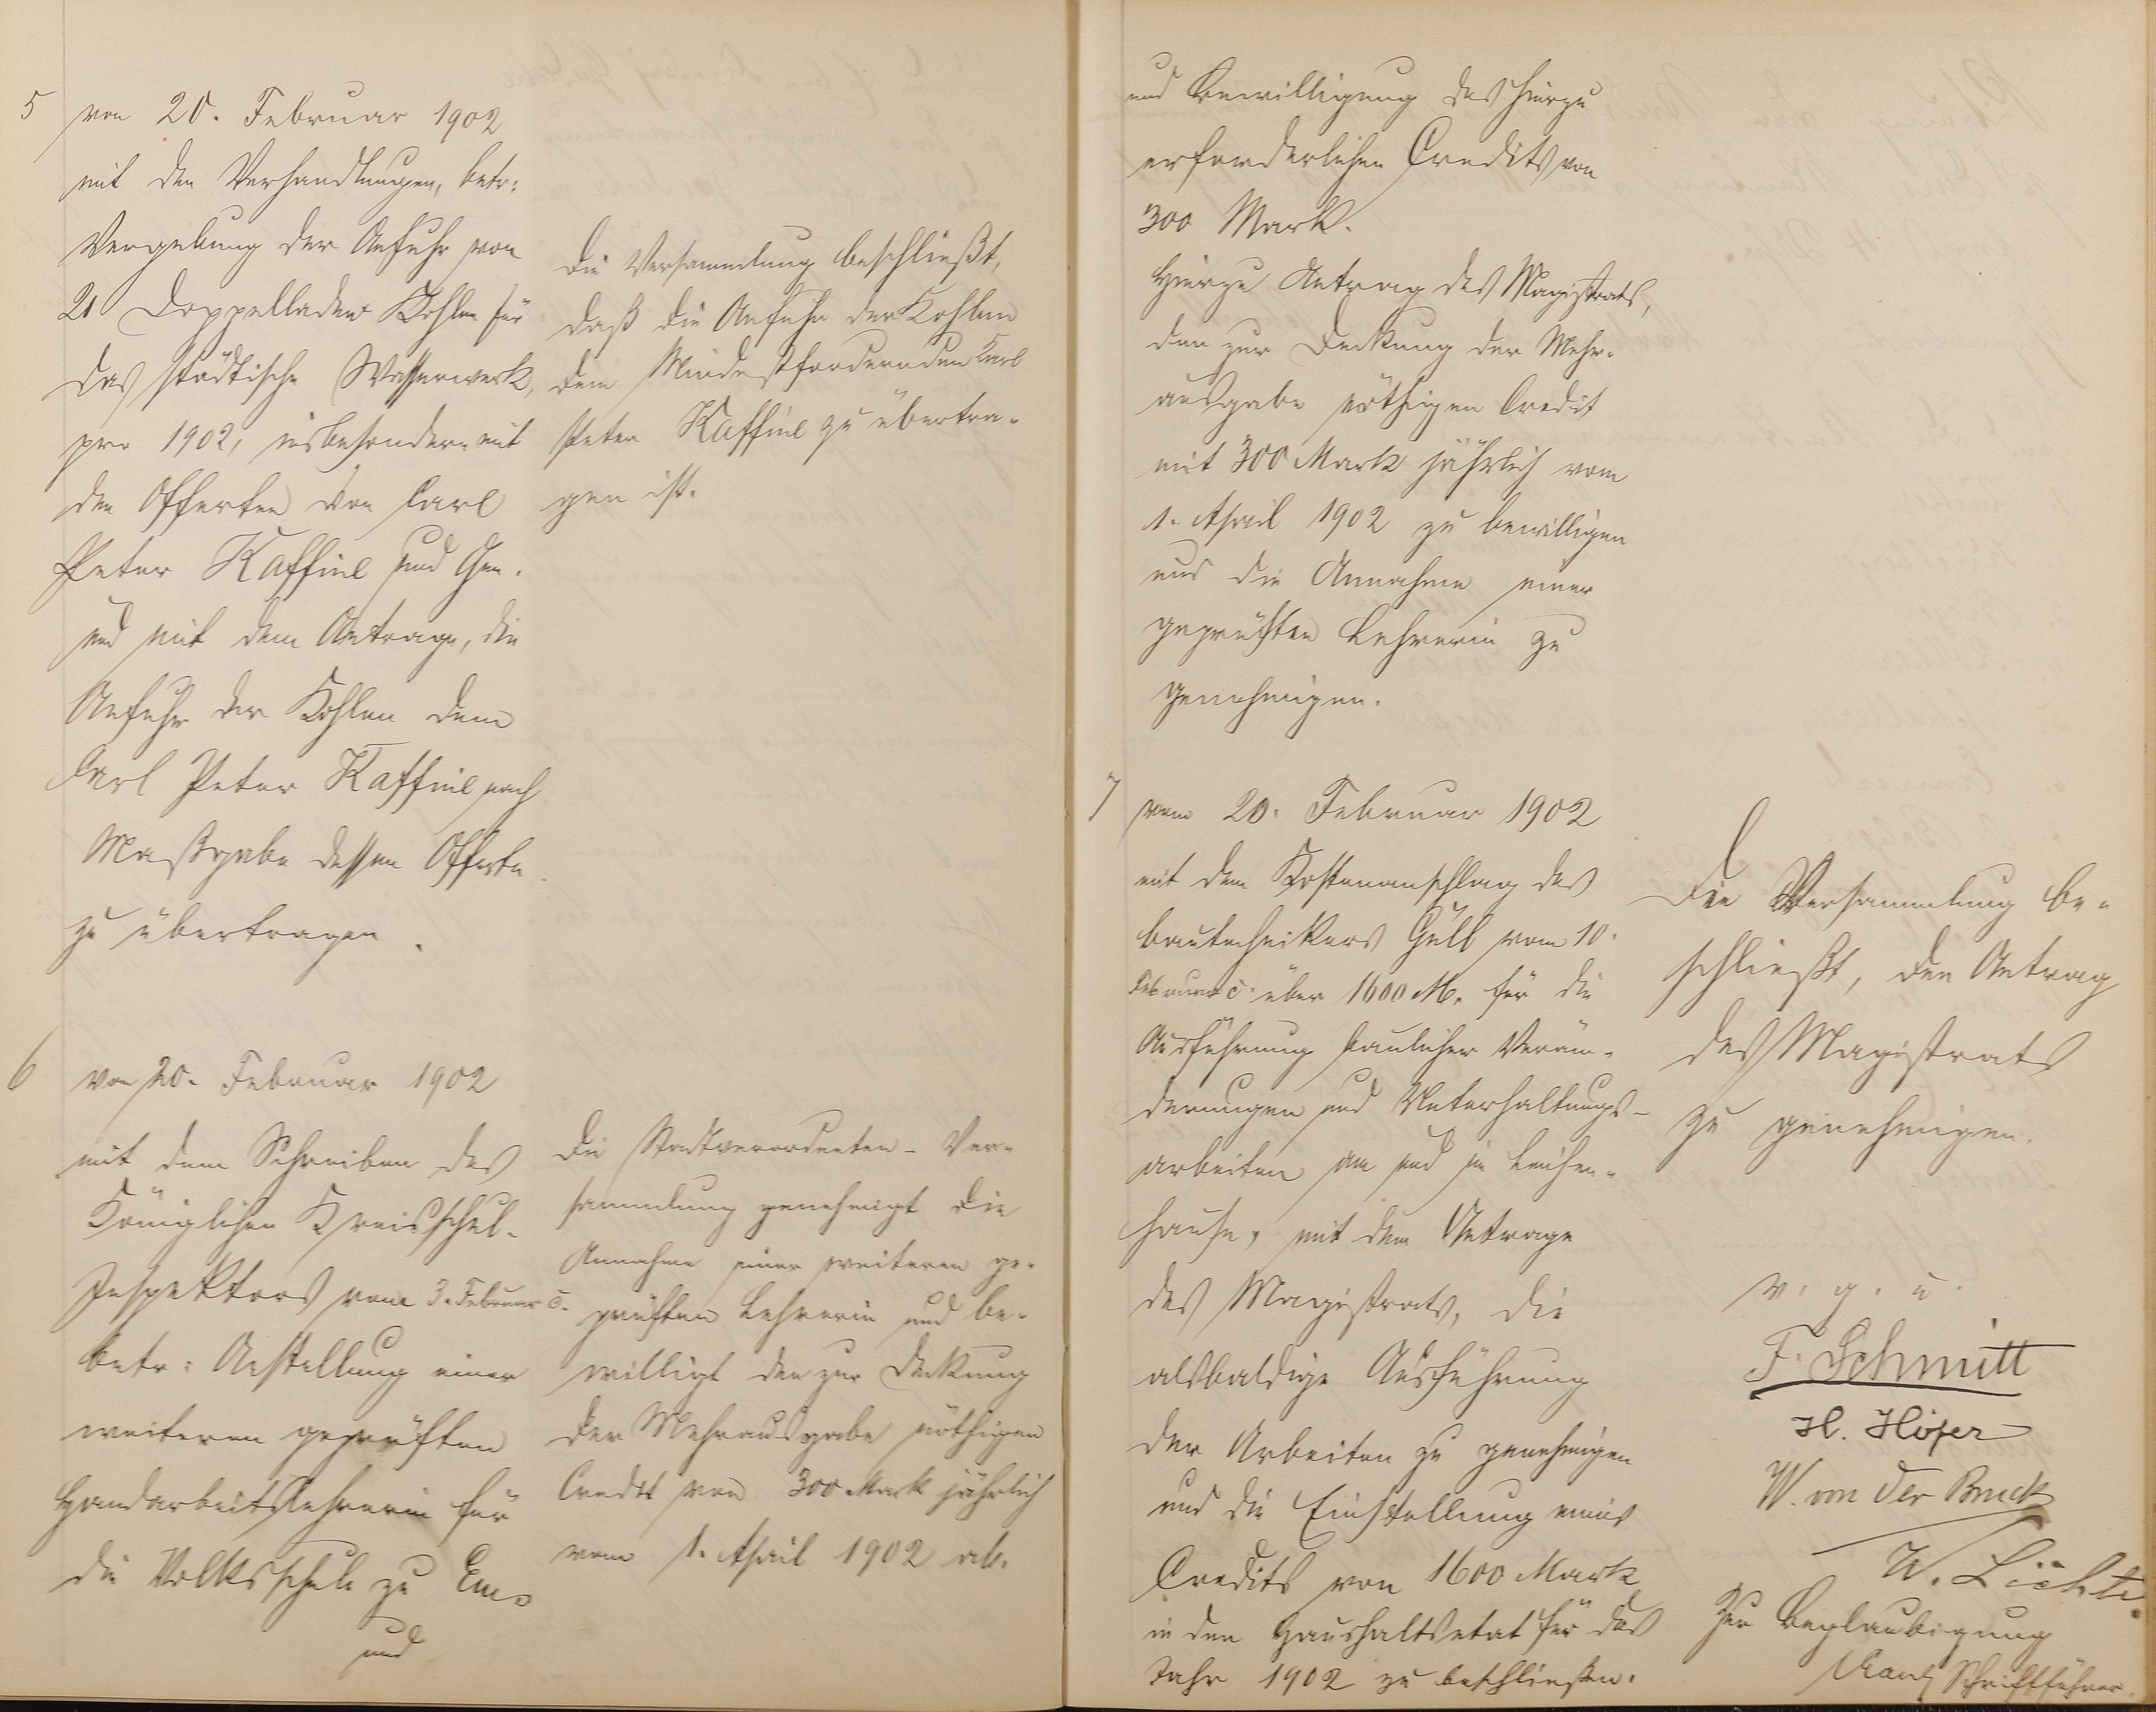 5 von 20. Februar 1902
mit den Verhandlungen, betr:
Vergebung der Anfuhr von
21 Doppelladen Kohlen für
das städtische Wasserwerk,
pro 1902, insbesondere mit
den Offerten von Carl
Peter Kaffine und Gen.
und mit dem Antrage, die
Anfuhr der Kohlen dem
Carl Peter Kaffine nach
Maßgabe dessen Offerte
zu übertragen.
Die Versammlung beschließt,
daß die Anfuhr der Kohlen
dem Mindestfordernden Carl
Peter Kaffine zu übertra-
gen ist.
6 von 20. Februar 1902
mit dem Schreiben des
Königlichen Kreisschul-
Inspektors vom 3. Februar c.
betr: Anstellung einer
weiteren geprüften
Handarbeitslehrerin für
die Volksschule zu Ems
und
Die Stadtverordneten-Ver-
sammlung genehmigt die
Annahme einer weiteren ge-
prüften Lehrerin und be-
willigt den zur Deckung
der Mehrausgabe nöthigen
Credit von 300 Mark jährlich
vom 1. April 1902 ab.
und Bewilligung des hierzu
erforderlichen Credits von
300 Mark.
Hierzu Antrag des Magistrats,
den zur Deckung der Mehr-
ausgabe nöthigen Credit
mit 300 Mark jährlich vom
1. April 1902 zu bewilligen
und die Annahme einer
geprüften Lehrerin zu
genehmigen.
7 vom 20. Februar 1902
mit dem Kostenanschlag des
Bautechnikers Güll vom 10.
Februar c. über 1600 M. für die
Ausführung baulicher Verän-
derungen und Unterhaltungs-
arbeiten am und im Leichen-
hause, mit dem Antrage
des Magistrats, die
alsbaldige Ausführung
der Arbeiten zu genehmigen
und die Einstellung eines
Credits von 1600 Mark
in den Haushaltsetat für das
Jahr 1902 zu beschließen.
Die Versammlung be-
schließt, den Antrag
des Magistrats
zu genehmigen.
v. g. u.
F. Schmitt
H. Höfer
W. von der Bruck
W.
Zur Beglaubigung
Schriftführer.